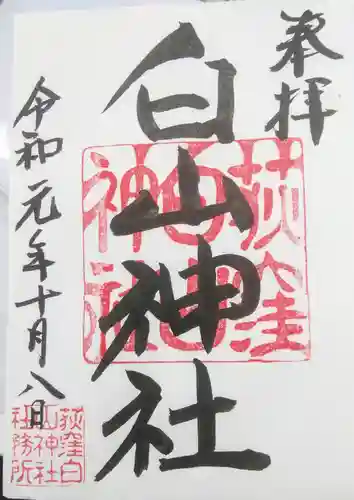 奉拝
白山神社
荻窪
白山
神社
令和元年十月八日
荻窪白
山神社
社務所